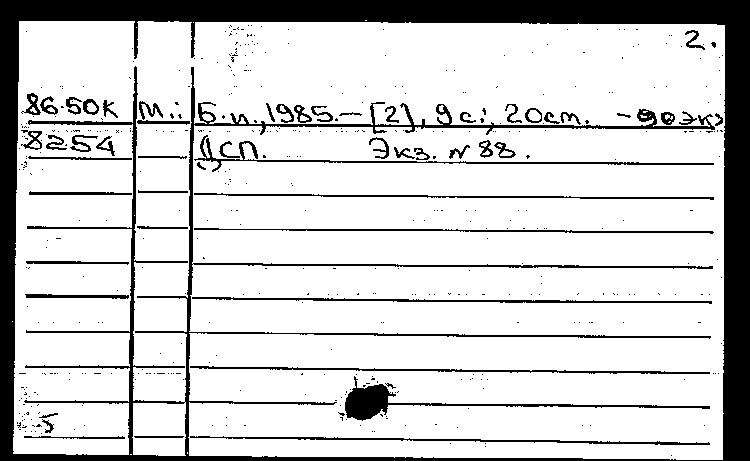 2.
86.50К М.: Б.и., 1985.– [2], 9 с.; 20 см. – 90 экз
8254 ДСП. Экз. N 88.
5